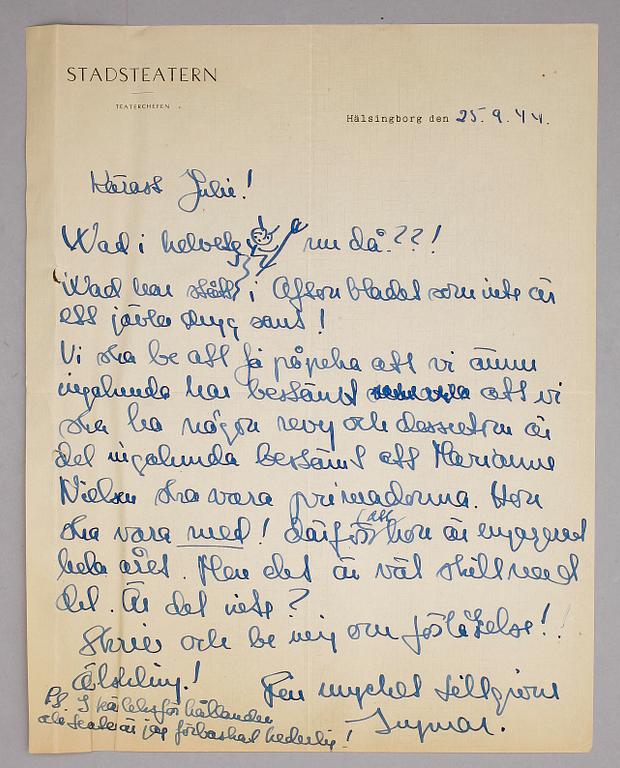 STADSTEATERN
TEATERCHEFEN
Hälsingborg den 25.9.44.
Käraste Julie!
Wad i helvete nu då??!
Wad har stått i Aftonbladet som inte är
ett jävla dugg sant!
Vi ska be att få påpeka att vi ännu
ingalunda har bestämt att vi
ska ha någon revy och dessutom är
det ingalunda bestämt att Marianne
Nielsen ska vara primadonna. Hon
ska vara med! därför att hon är engagerad
hela året. Men det är väl skillnad
det. Är det inte?
Skriv och be mig om förlåtelse!!
älskling! Den mycket
Ingmar.
PS. I kärleksförhållanden
och teater är jag förbaskat hederlig!